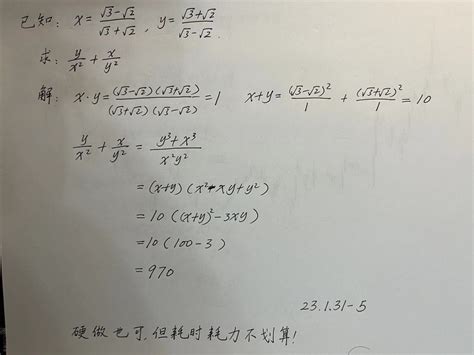 已知: x = (√3-√2)/(√3+√2), y = (√3+√2)/(√3-√2).
求: y/x² + x/y²
解: x·y = (√3-√2)(√3+√2)/(√3+√2)(√3-√2) = 1 x+y = (√3-√2)²/1 + (√3+√2)²/1 = 10
y/x² + x/y² = (y³+x³)/(x²y²)
= (x+y)(x²-xy+y²)
= 10((x+y)²-3xy)
= 10(100-3)
= 970
23.1.31-5
硬做也可,但耗时耗力不划算!